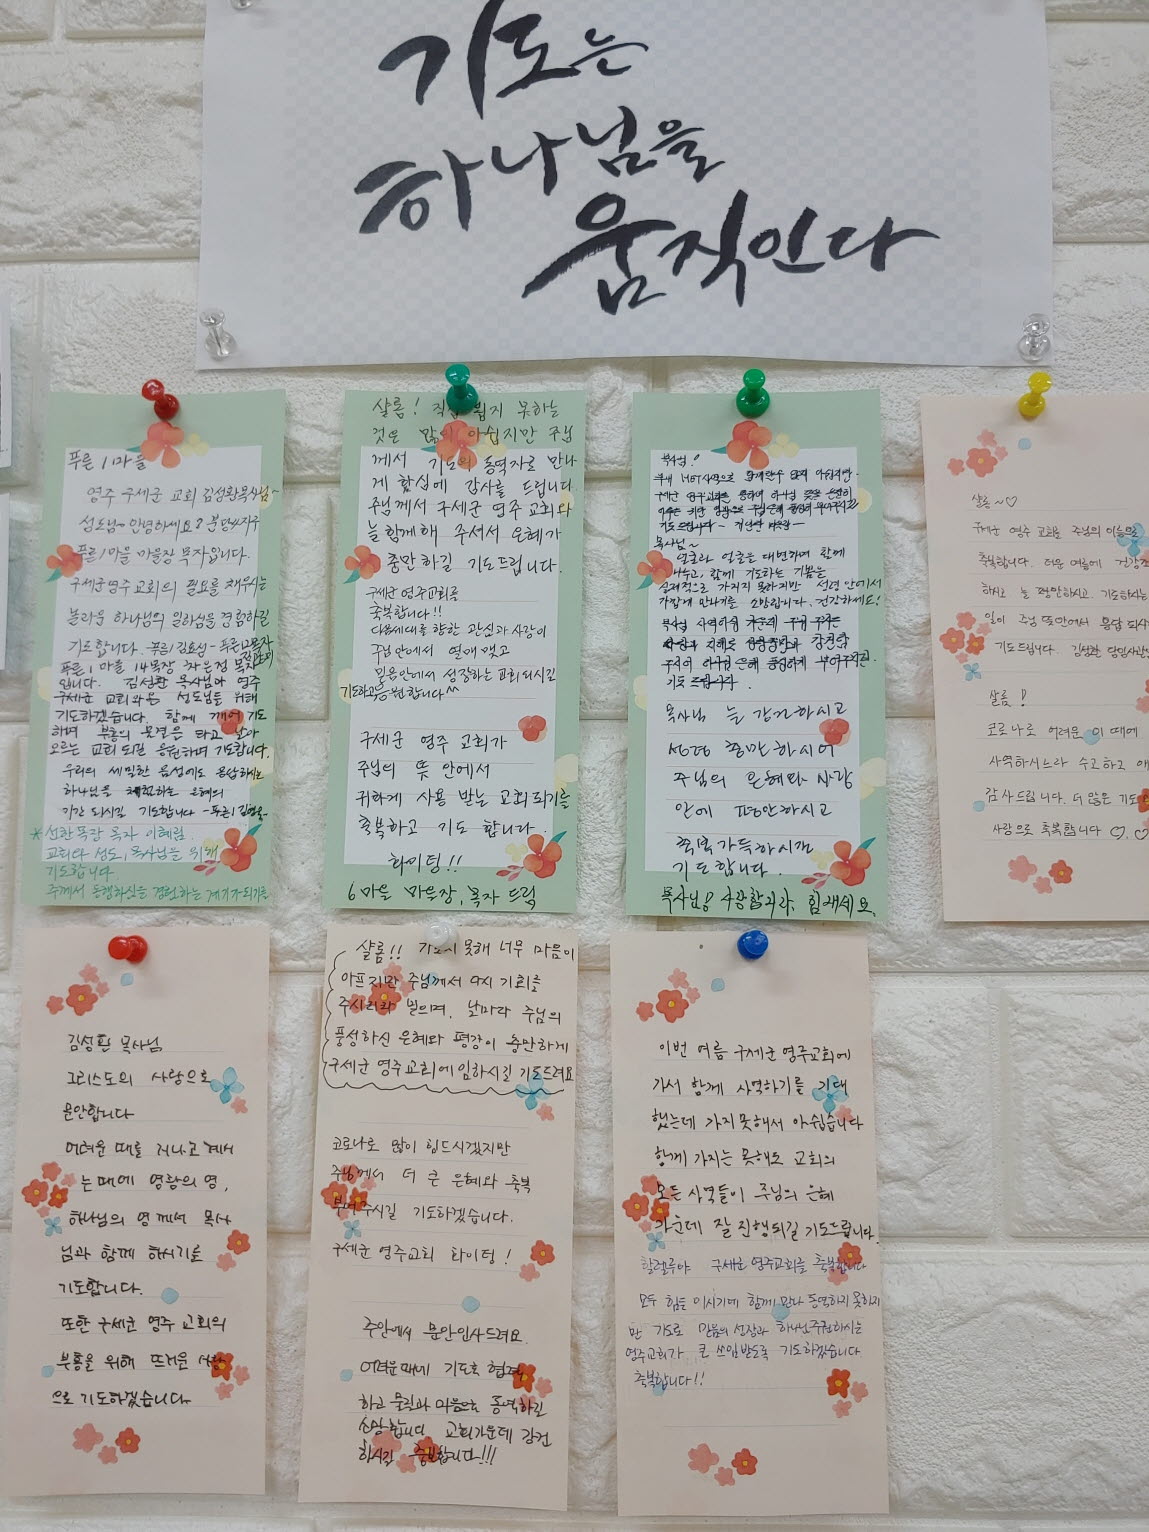 기도는
하나님을
움직인다
푸른 1마을
영주 구세군 교회 김성환목사님~
성도님~ 안녕하세요? 분당4지구
푸른1마을 마을장 목자입니다.
구세군영주 교회의 필요를 채우시는
놀라운 하나님의 일하심을 경험하길
기도합니다.
푸른1마을 14목장
입니다. 김성환 목사님과 영주
구세군 교회와 성도님을 위해
기도하겠습니다. 함께 깨어 기도
하며 부흥의 물결을 타고 날아
오르는 교회 되길 응원하며 기도합니다.
우리의 세밀한 음성에도 응답하시는
하나님을 체험하는 은혜의
기간 되시길 기도합니다
*선한목장 목자 이혜림
교회와 성도, 목사님을 위해
기도합니다
주께서 동행하심을 경험하는 계기가되기를
샬롬! 직접 뵙지 못하는
것은 많이 아쉽지만 주님
께서 기도의 동역자로 만나
게 하심에 감사를 드립니다.
주님께서 구세군 영주 교회와
늘 함께해 주셔서 은혜가
충만하길 기도드립니다.
구세군 영주교회를
축복합니다!!
다음세대를 향한 관심과 사랑이
주님안에서 열매 맺고
믿음안에서 성장하는 교회 되시길
기도하고 응원합니다^^
구세군 영주 교회가
주님의 뜻 안에서
귀하게 사용 받는 교회되기를
축복하고 기도 합니다.
화이팅!!
6마을 마을장, 목자 드림
목사님!
기도드립니다~
목사님~
얼굴과 얼굴을 대면하며 함께
나누고, 함께 기도하는 기쁨을
실제적으로 가지지 못하지만 성령 안에서
가깝게 만나기를 소망합니다. 건강하세요!
기도 드립니다.
목사님 늘 강건하시고
성령 충만하시어
주님의 은혜와 사랑
안에 평안하시고
축복 가득하시길
기도합니다.
목사님! 사랑합니다. 힘내세요.
샬롬~♡
구세군 영주 교회를 주님의 이름으로
축복합니다. 더운 여름에 건강
하시고 늘 평안하시고, 기도하시는
일이 주님 뜻안에서 응답 되시
기도드립니다. 김성환 담임사관님
샬롬!
코로나로 어려운 이 때에
사역하시느라 수고하고 애
감사드립니다. 더 많은 기도
사랑으로 축복합니다 ♡.♡
김성환 목사님
그리스도의 사랑으로
문안합니다
어려운 때를 지나고 계시
는 때에 영광의 영,
하나님의 영께서 목사
님과 함께 하시기를
기도합니다.
또한 구세군 영주 교회의
부흥을 위해 뜨거운 사랑
으로 기도하겠습니다
샬롬!! 가보지 못해 너무 마음이
아프지만 주님께서 다시 기회를
주시리라 믿으며, 날마다 주님의
풍성하신 은혜와 평강이 충만하게
구세군 영주교회에 임하시길 기도드려요
코로나로 많이 힘드시겠지만
주님께서 더 큰 은혜와 축복
부어주시길 기도하겠습니다.
구세군 영주교회 화이팅!
주안에서 문안인사드려요.
어려운때에 기도로 협력
하고 물질과 마음으로 동역하길
소망합니다 교회가운데 강건
하시길 축복합니다!!!
이번 여름 구세군 영주교회에
가서 함께 사역하기를 기대
했는데 가지못해서 아쉽습니다
함께 가지는 못해도 교회의
모든 사역들이 주님의 은혜
가운데 잘 진행되길 기도드립니다.
할렐루야 구세군 영주교회를 축복합니다
모두 힘든 이시기에 함께 만나 동역하지 못하지
만 기도로 믿음의 성장과 하나님 주관하시는
영주교회가 큰 쓰임받도록 기도하겠습니다
축복합니다!!